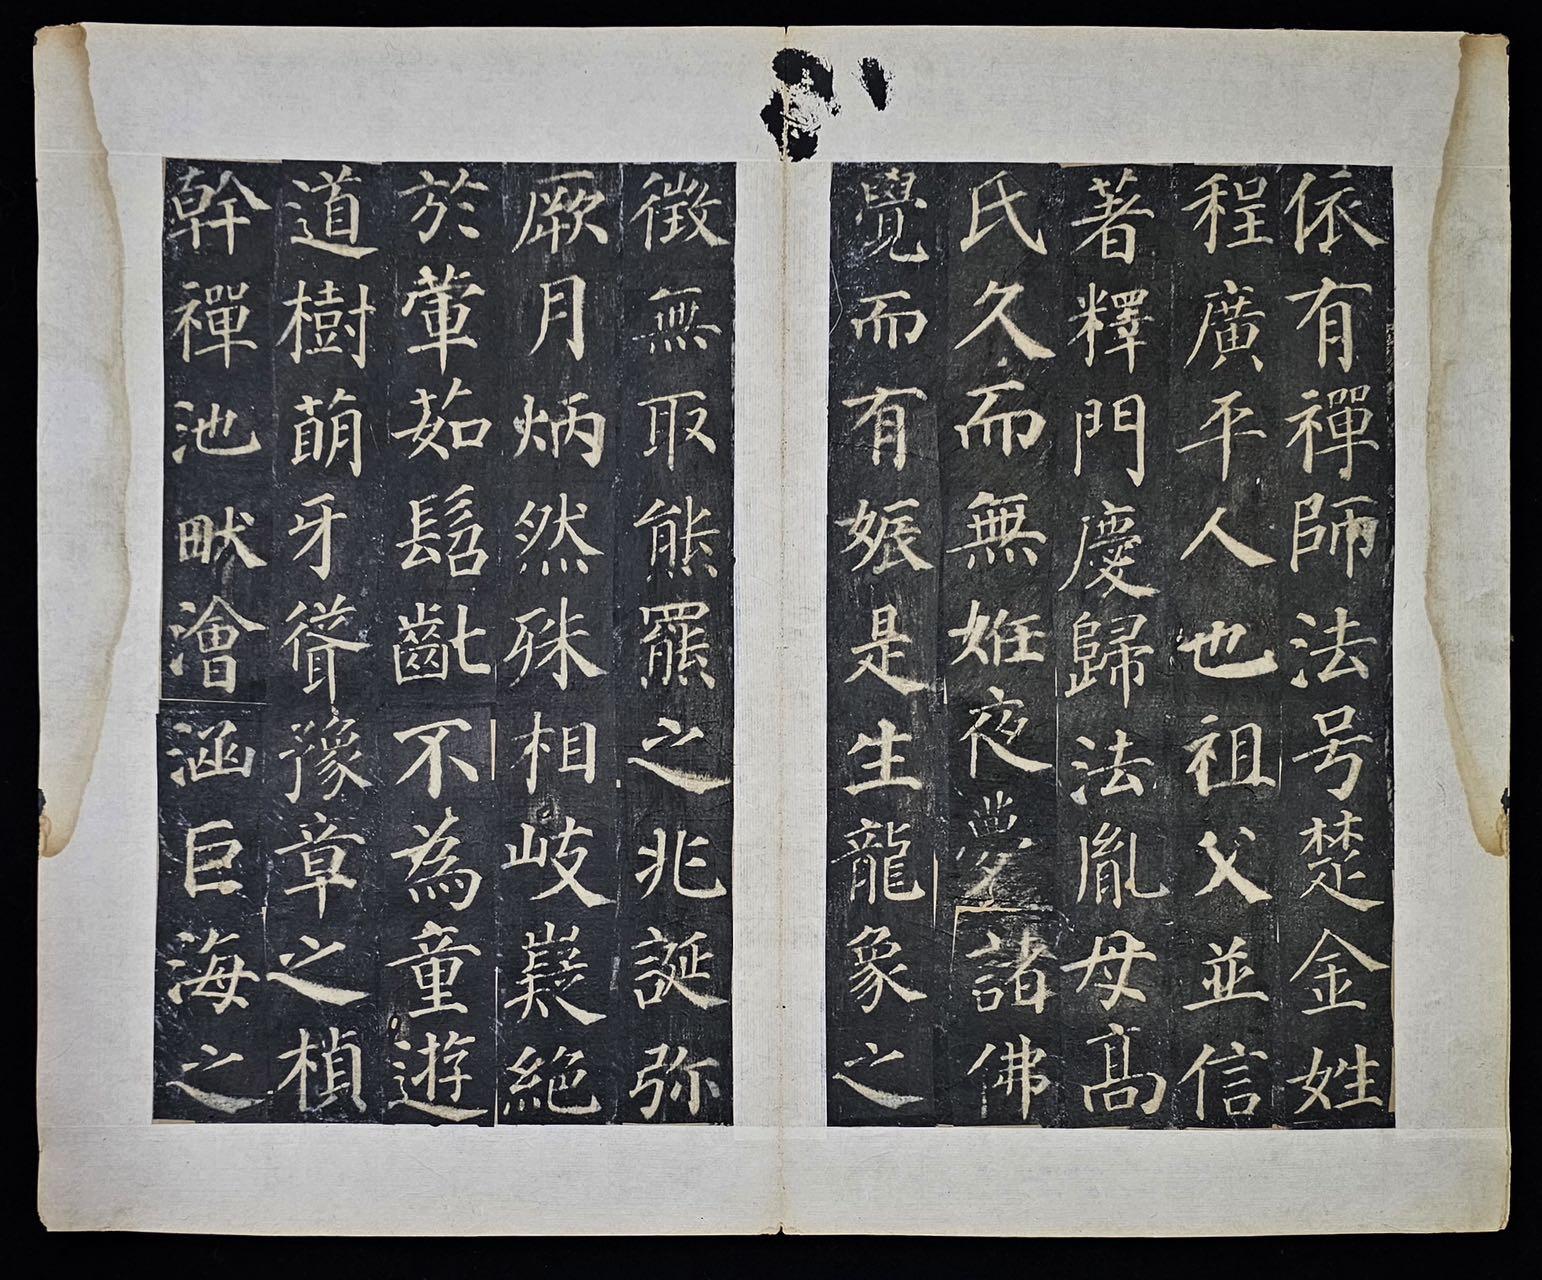 依有禪師法号楚金姓
程廣平人也祖父並信
著釋門慶歸法胤母髙
氏久而無姙夜夢諸佛
覺而有娠是生龍象之
徵無取熊羆之兆誕弥
厥月炳然殊相岐嶷絕
於葷茹髫齓不為童遊
道樹萌牙聳豫章之楨
幹禪池畎澮涵巨海之